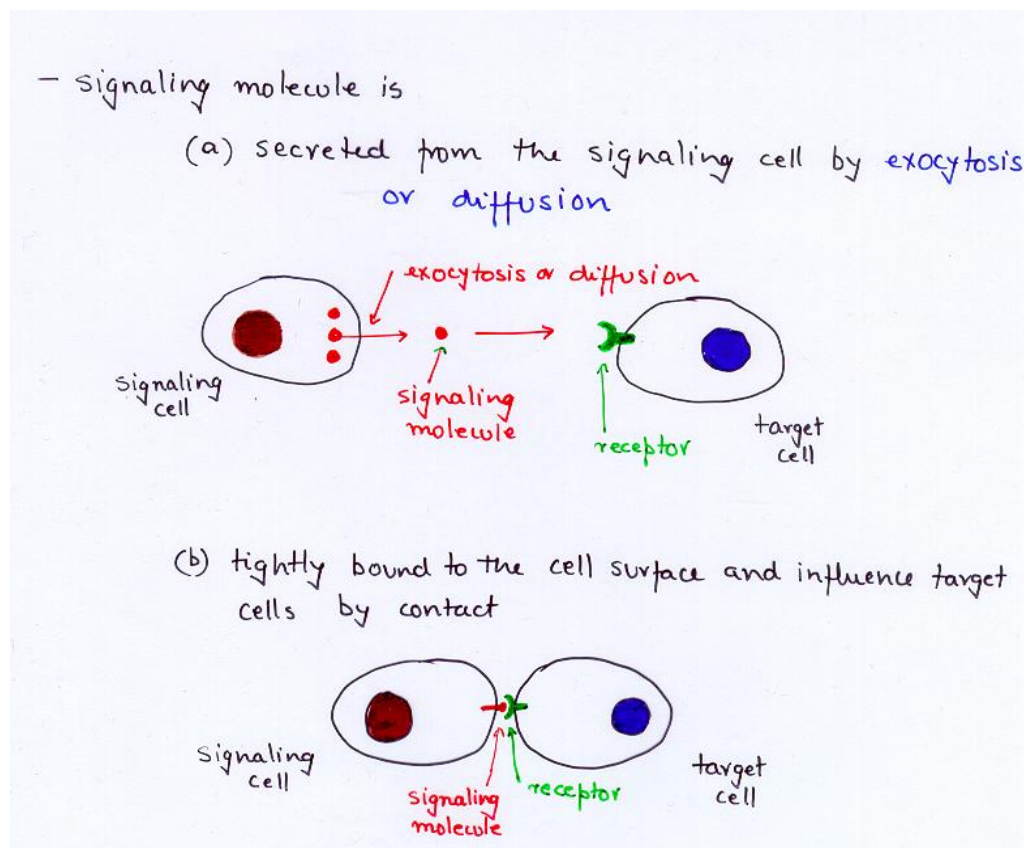 - signaling molecule is
(a) secreted from the signaling cell by exocytosis
or diffusion
exocytosis or diffusion
signaling
cell
signaling
molecule
receptor
target
cell
(b) tightly bound to the cell surface and influence target
cells by contact
signaling
cell
signaling
molecule
receptor
target
cell